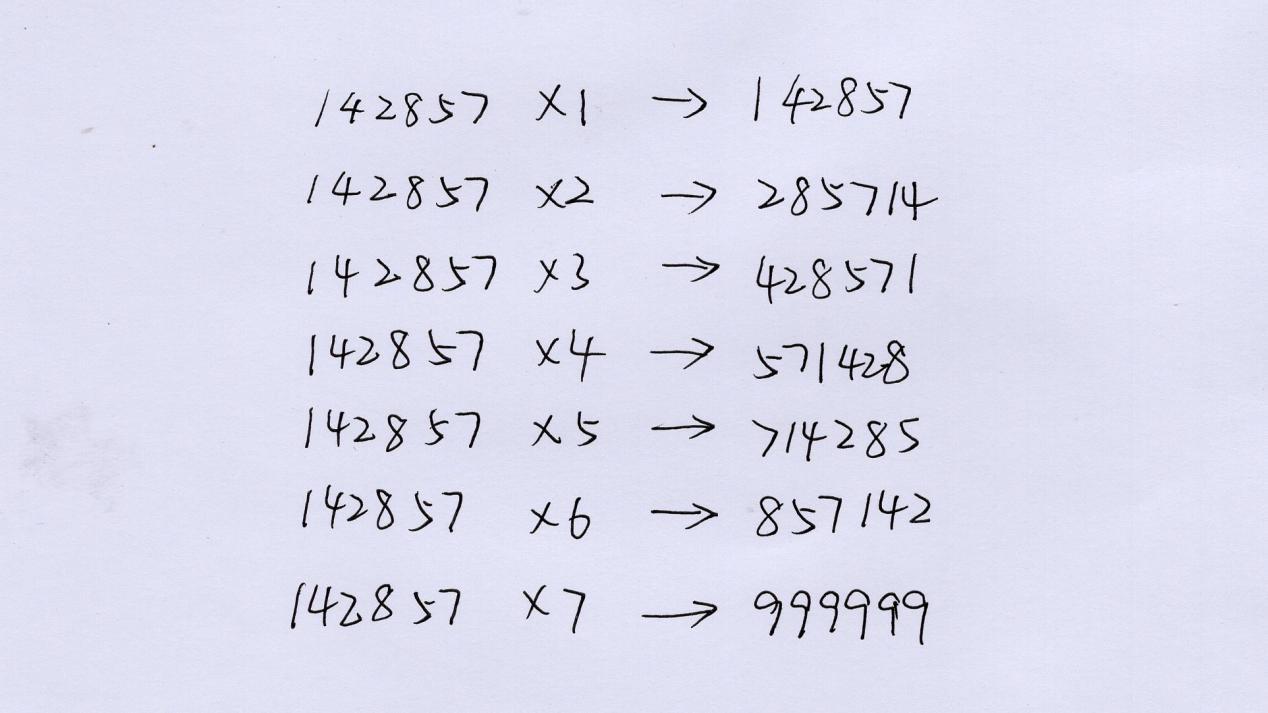 142857 ×1 → 142857
142857 ×2 → 285714
142857 ×3 → 428571
142857 ×4 → 571428
142857 ×5 → 714285
142857 ×6 → 857142
142857 ×7 → 999999